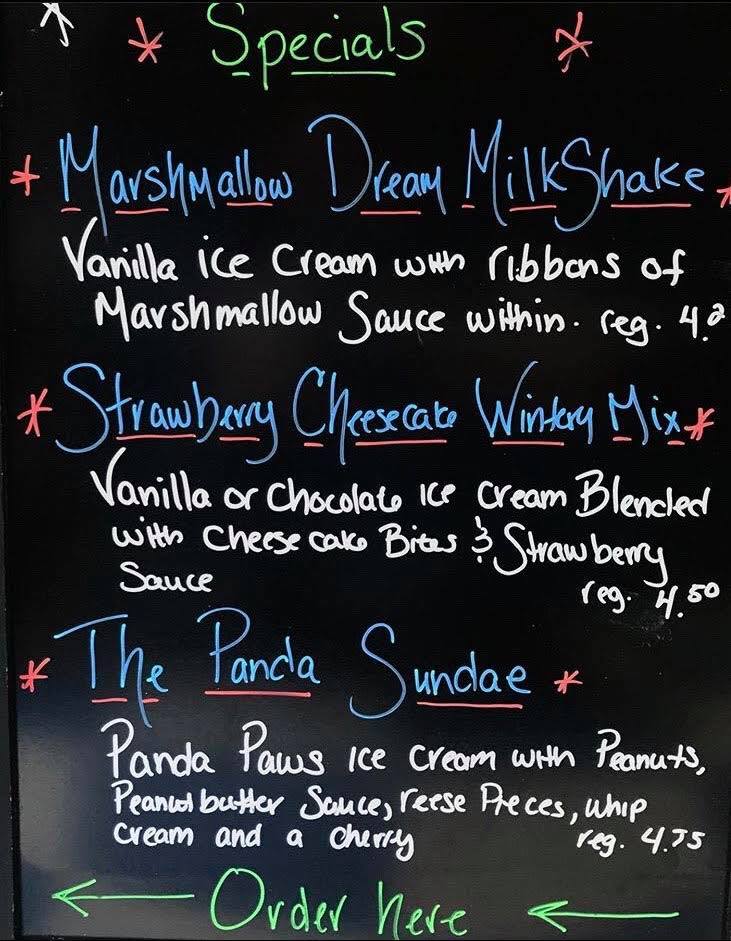 Specials
Marshmallow Dream MilkShake
Vanilla ice cream with ribbons of
Marshmallow Sauce within. reg.
Strawberry Cheesecake Wintery Mix
Vanilla or Chocolate ice cream Blended
with cheesecake Bites & Strawberry
Sauce
reg. 4.50
The Panda Sundae
Panda Paws ice cream with Peanuts,
Peanut butter Sauce, reese Pieces, whip
cream and a cherry reg. 4.75
← Order here ←